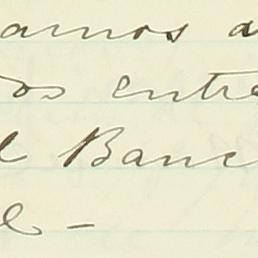 amos a
os entre
l Banc
e -